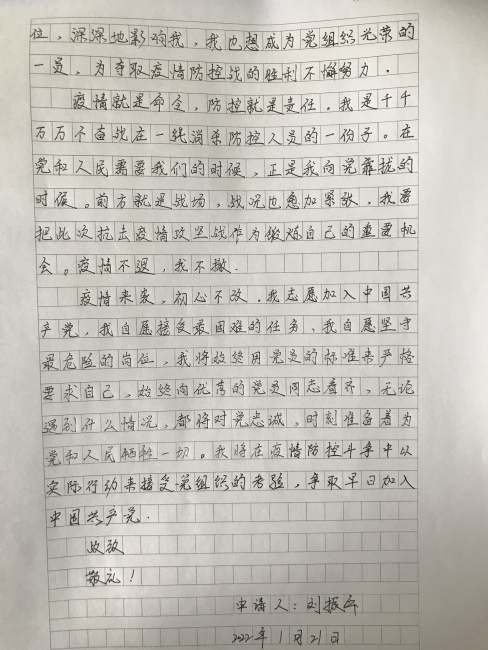 位，深深地影响我，我也想成为党组织光荣的
一员，为夺取疫情防控战的胜利不懈努力．
疫情就是命令，防控就是责任。我是千千
万万不奋战在一线消杀防控人员的一份子。在
党和人民需要我们的时候，正是我向党靠拢的
时候。前方就是战场，战况也愈加紧张，我要
把此次抗击疫情攻坚战作为锻炼自己的重要机
会。疫情不退，我不撤．
疫情来袭，初心不改．我志愿加入中国共
产党，我自愿接受最困难的任务，我自愿坚守
最危险的岗位，我将始终用党员的标准来严格
要求自己，始终向优秀的党员同志看齐，无论
遇到什么情况，都将对党忠诚，时刻准备着为
党和人民牺牲一切。我将在疫情防控斗争中以
实际行动来接受党组织的考验，争取早日加入
中国共产党．
此致
敬礼！
申请人：刘振
2022年1月21日